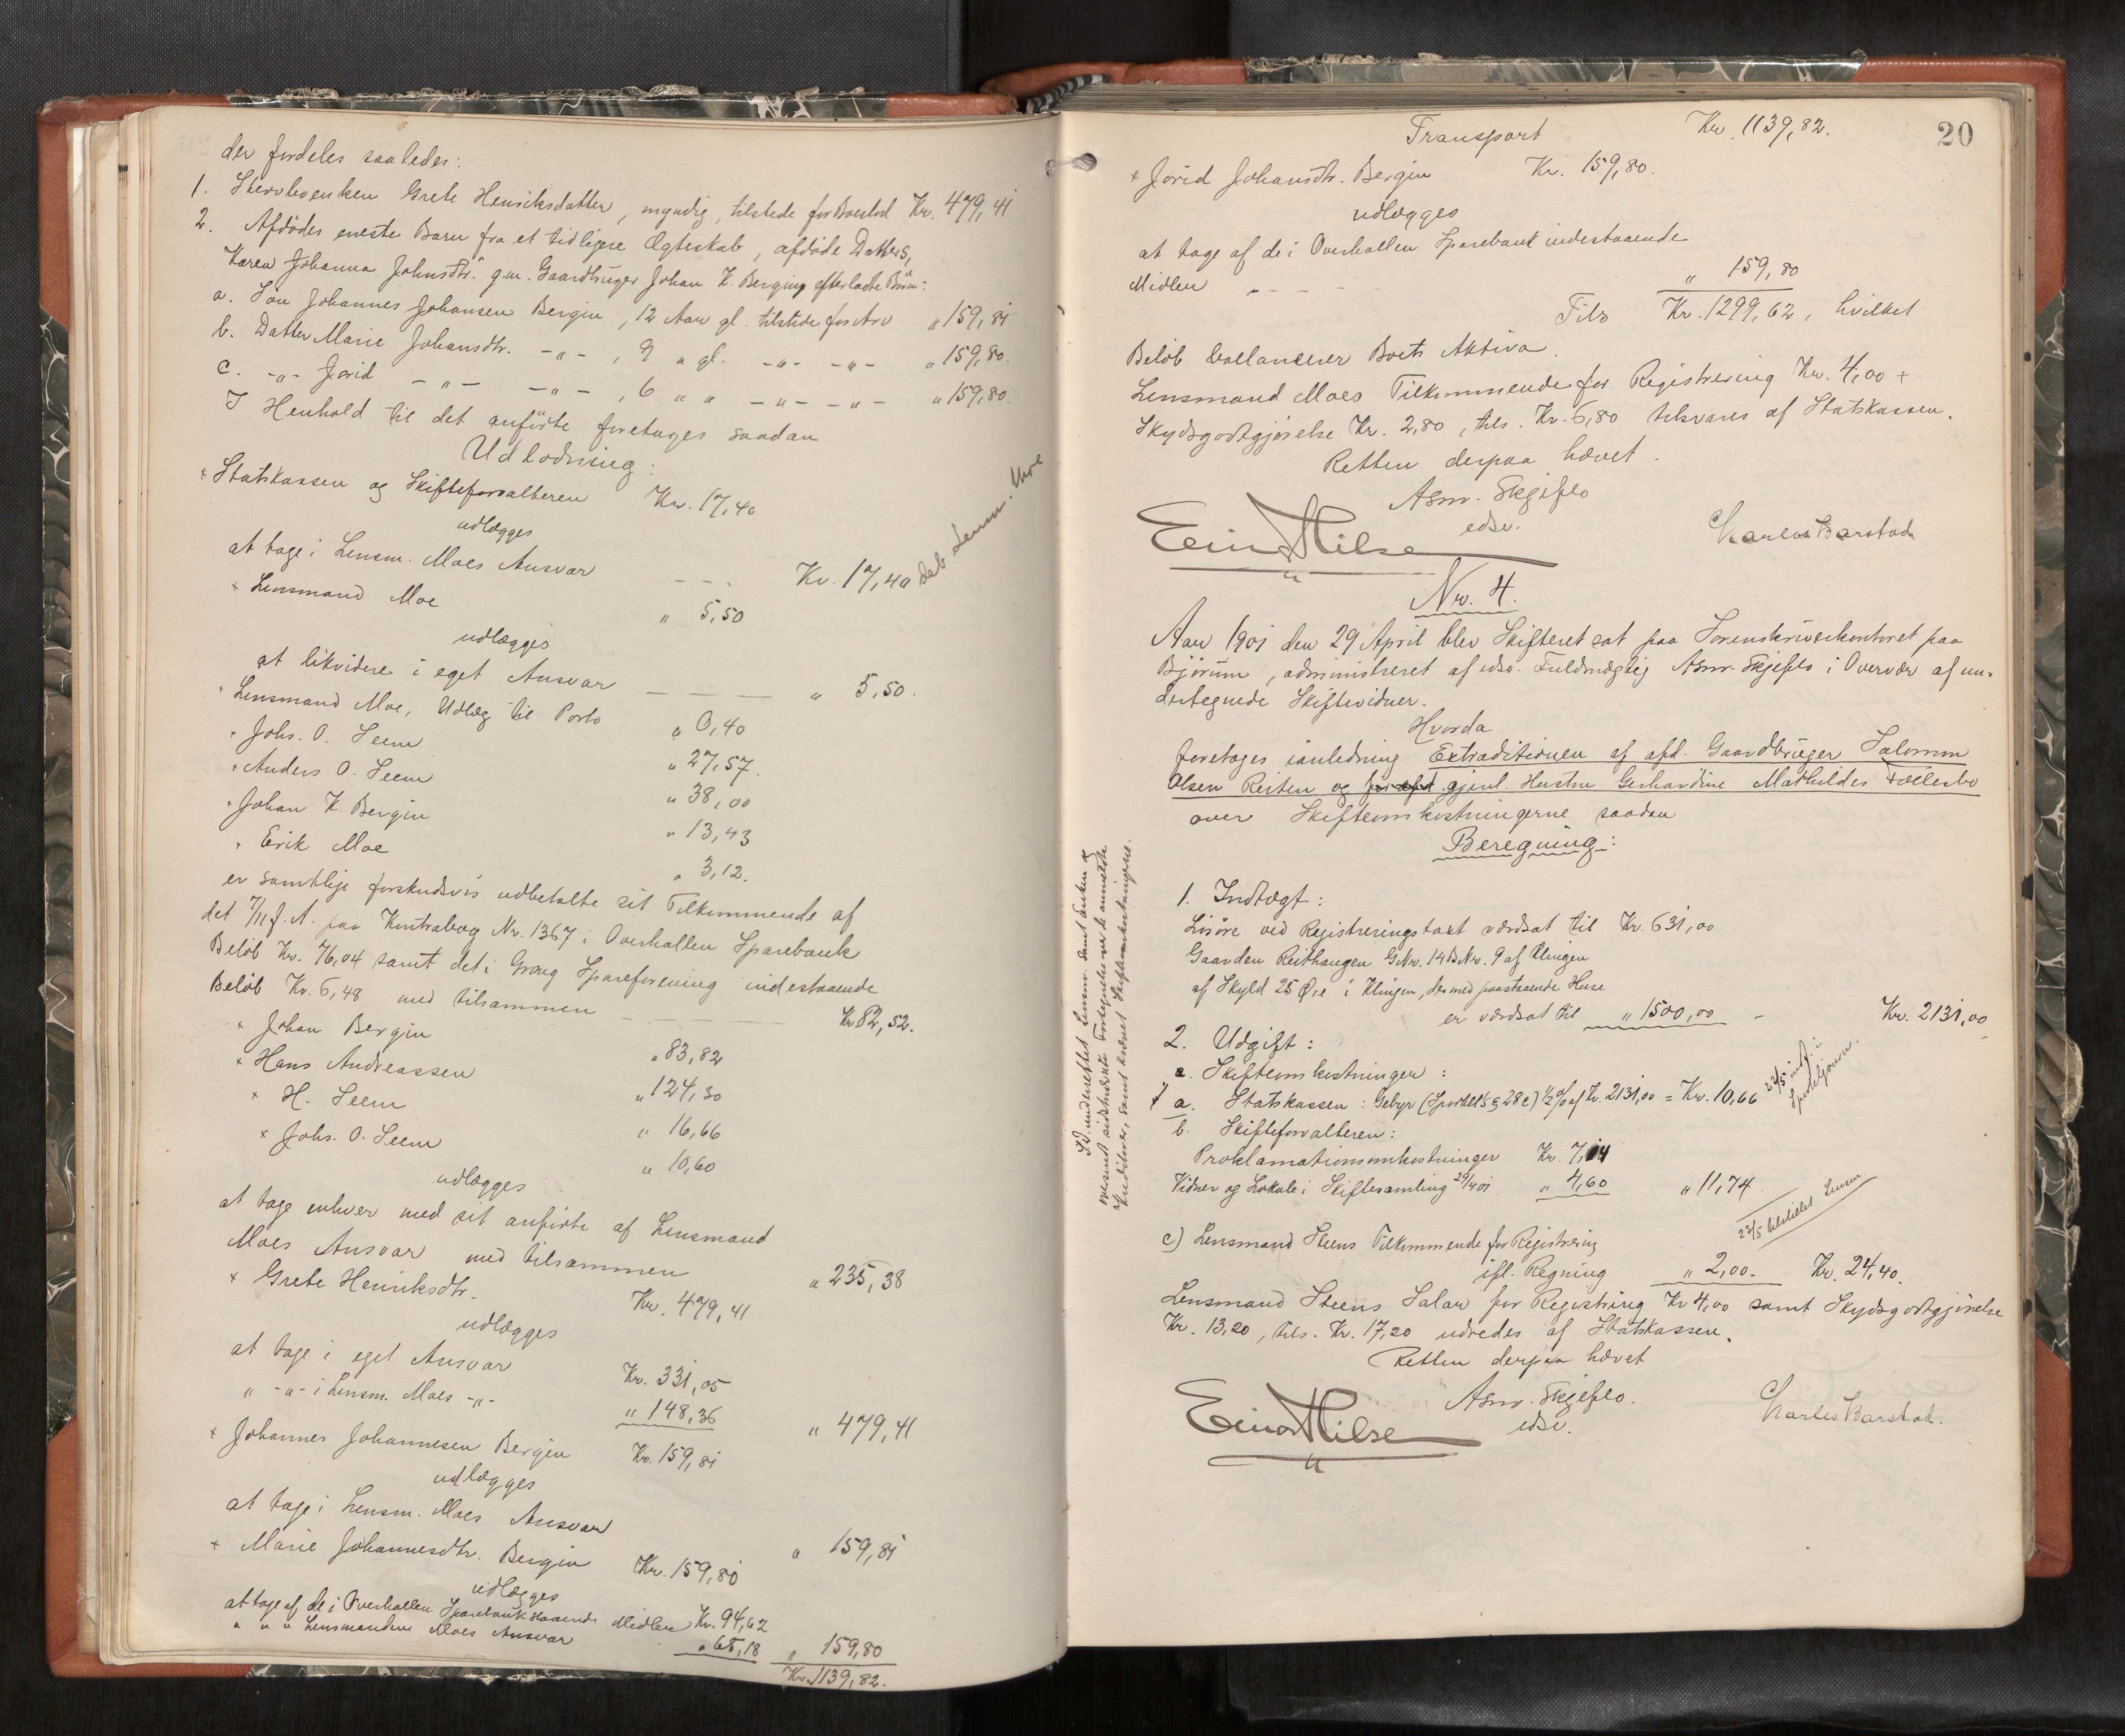 der fordeles saaledes:
1. Stervboenken Grete Henriksdatter, myndig, tilstede for Boeslod Kr. 479,41
2. Afdødes eneste Barn fra et tidligere Ægteskab, afdøde Datters,
Karen Johanna Johnsdtr. g.m. Gaardbruger Johan K. Bergins efterladte Børn:
a. Søn Johannes Johansen Bergin, 12 Aar gl. tilstede for Arv " 159,81
b. Datter Marie Johansdtr. -"- , 9 " gl. -"- -"- " 159,80.
c. -"- Jorid -"- -"- , 6 " " -"- -"- " 159,80.
I Henhold til det anførte foretages saadan
Udlodning:
× Statskassen og Skifteforvalteren Kr. 17,40
udlægges
at tage i Lensm. Moes Ansvar - - - Kr. 17,40 deb. Lensm. Moe
× Lensmand Moe " 5,50
udlægges
at likvidere i eget Ansvar — — — " 5,50.
× Lensmand Moe, Udlæg til Porto " 0,40
× Johs. O. Seem " 27,57.
× Anders O. Seem " 38,00
× Johan K. Bergin " 13,43
× Erik Moe " 3,12.
er samtlige forskudsvis udbetalte sit Tilkommende af
det 7/11 f. A. paa Kontrabog Nr. 1367 i Overhallen Sparebank
Beløb Kr. 76,04 samt det i Grong Spareforening indestaaende
Beløb Kr. 6,48 med tilsammen — — — Kr 82,52.
× Johan Bergin " 83,82
× Hans Andreassen " 124,30
× H. Seem " 16,66
× Johs. O. Seem " 10,60
udlægges
at tage enhver med sit anførte af Lensmand
Moes Ansvar med tilsammen " 235,38
× Grete Henriksdtr. Kr. 479,41
udlægges
at tage i eget Ansvar Kr. 331,05
" -"- i Lensm. Moes -"- " 148,36 " 479,41
× Johannes Johannesen Bergin Kr. 159,81
udlægges
at tage i Lensm. Moes Ansvar " 159,81
× Marie Johannesdtr. Bergin Kr. 159,80
udlægges
at tage af de i Overhallen Sparebank staaende Midler Kr. 94,62
" " " Lensmanden Moes Ansvar " 65,18 " 159,80
Kr. 1139,82.
20
Transport Kr. 1139,82.
× Jorid Johansdtr. Bergin Kr. 159,80.
udlægges
at tage af de i Overhallen Sparebank indestaaende
Midler " - - - " 159,80
Tils Kr. 1299,62, hvilket
Beløb ballancerer Boets Aktiva.
Lensmand Moes Tilkommende for Registrering Kr. 4,00 +
Skydsgodtgjørelse Kr. 2,80, tils. Kr. 6,80 tilsvares af Statskassen.
Retten derpaa hævet.
Asm. Skjeflo
edsv.
Einar Hilse
Charles Barstad
Nr. 4.
Aar 1901 den 29 April blev Skifteret sat paa Sorenskriverkontoret paa
Bjørum, administreret af edsv. Fuldmægtig Asm. Skjeflo i Overvær af un-
dertegnede Skiftevidner.
Hvorda
foretages i anledning Extraditionen af afd. Gaardbruger Salomon
Olsen Reiten og for afd. gjenl. Hustru Gerhardine Mathildes Fællesbo
over Skifteomkostningerne saadan
Beregning:
1. Indtægt:
Løsøre ved Registreringstaxt værdsat til Kr. 631,00
Gaarden Reithaugen GNr. 14 BNr. 9 af Klingen
af Skyld 25 Øre i Klingen, der med paastaaende Huse
er værdsat til " 1500,00 - Kr. 2131,00
2. Udgift:
a. Skifteomkostninger:
a. Statskassen: Gebyr (Sportell's § 28 c) 1/2 % af Kr. 2131,00 = Kr. 10,66 23/5 indf. i Sporteljourn.
b. Skifteforvalteren:
Proklamationsomkostninger Kr. 7,14
Vidner og Lokale i Skiftesamling 29/4 01 " 4,60 " 11,74
23/5 tilstillet Lensm
c) Lensmand Steens Tilkommende for Registrering
ifl. Regning " 2,00. Kr. 24,40.
Lensmand Steens Salar for Registring Kr 4,00 samt Skydsgodtgjørelse
Kr. 13,20, tils. Kr. 17,20 udredes af Statskassen.
Retten derpaa hævet
Asm. Skjeflo.
edsv.
Einar Hilse
Charles Barstad.
S.D. underrettet Lensm. samt Enken og
Kreditorer, samt krævet Skifteomkostningerne.